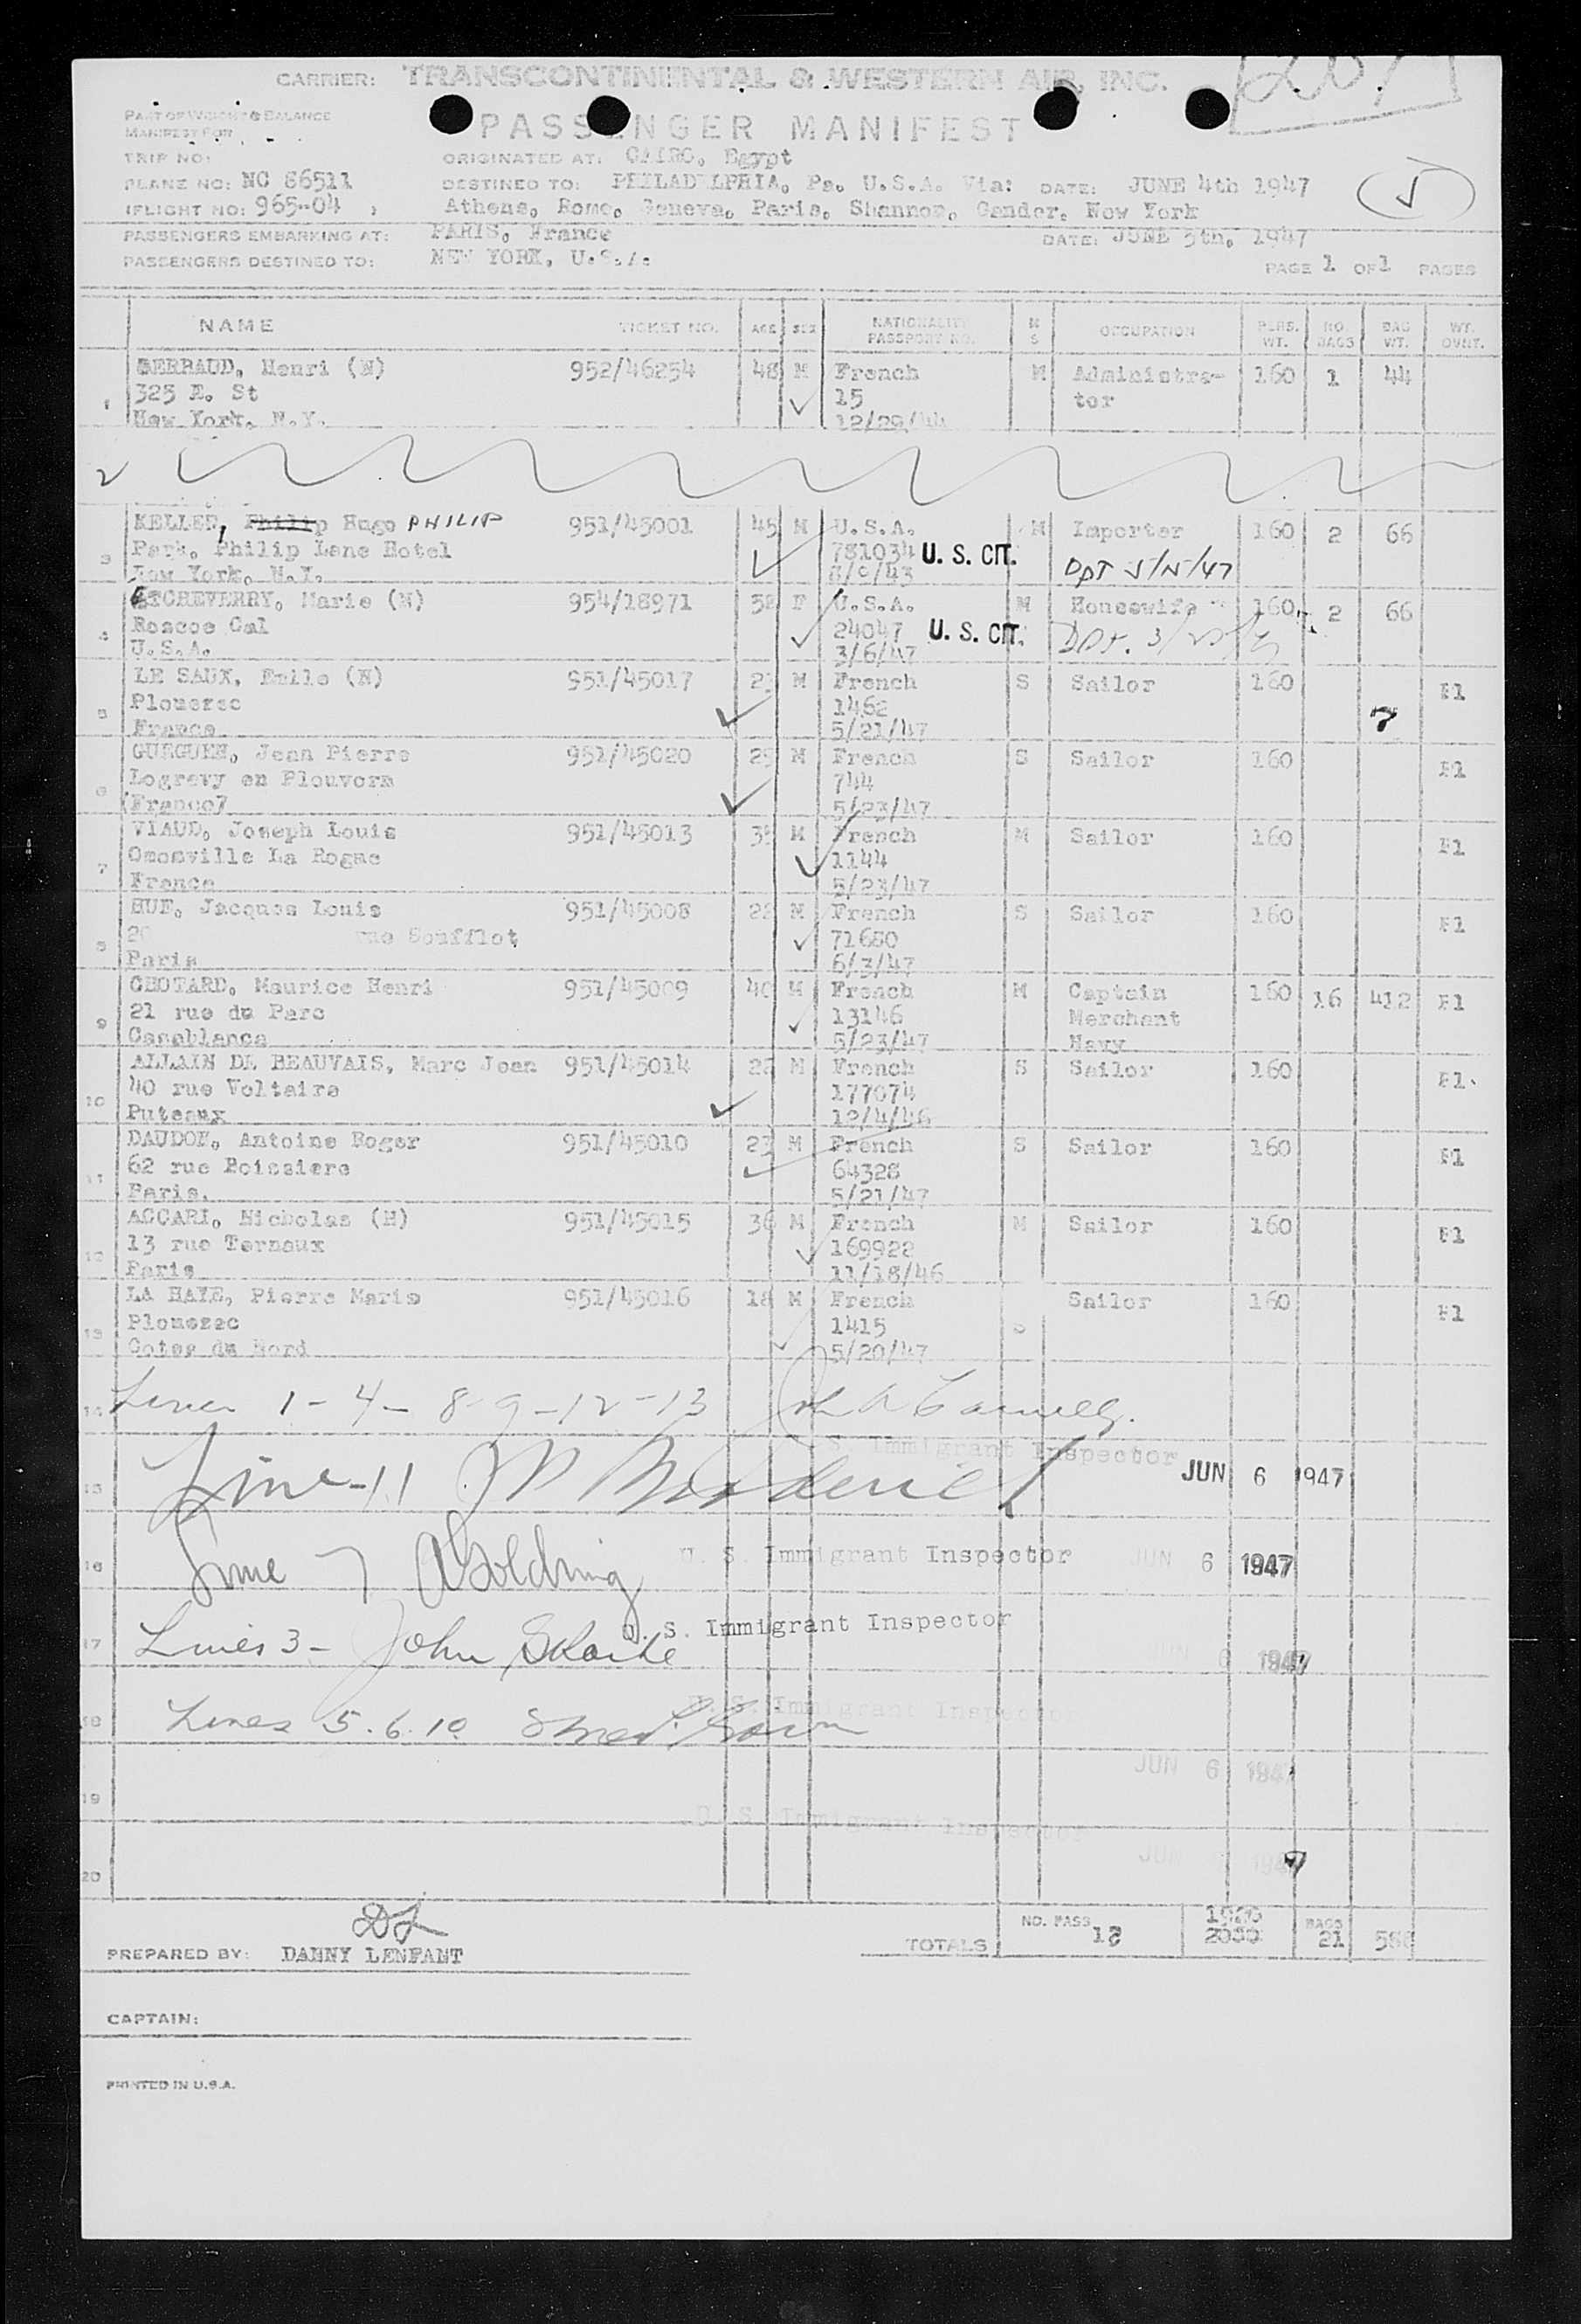 CARRIER: TRANSCONTINENTAL & WESTERN AIR, INC.
PART OF WEIGHT & BALANCE
MANIFEST FOR
PASSENGER MANIFEST
TRIP NO: ORIGINATED AT: CAIRO, Egypt
PLANE NO: NC 86511 DESTINED TO: PHILADELPHIA, Pa. U.S.A. Via: DATE: JUNE 4th 1947
(FLIGHT NO: 965-04 ) Athens, Rome, Geneva, Paris, Shannon, Gander, New York
PASSENGERS EMBARKING AT: PARIS, France DATE: JUNE 5th, 1947
PASSENGERS DESTINED TO: NEW YORK, U.S.A. PAGE 1 OF 1 PAGES
NAME TICKET NO. AGE SEX NATIONALITY PASSPORT NO. M S OCCUPATION PASS. WT. NO. BAGS BAG WT. WT. OVNT.
1 GERBAUD, Henri (N) 952/46254 48 M French M Administra- 160 1 44
325 E. St 15 tor
New York, N.Y. 12/29/44
2
3 KELLER, Philip Hugo PHILIP 951/45001 45 M U.S.A. M Importer 160 2 66
Park, Philip Lane Hotel 781034 U. S. CIT.
New York, N.Y. DPT 5/15/47
4 ETCHEVERRY, Marie (N) 954/18971 58 F U.S.A. M Housewife 160 2 66
Roscoe Cal 24047 U. S. CIT. Dpt. 3/25/47
U.S.A. 3/6/47
5 LE SAUX, Emile (N) 951/45017 21 M French S Sailor 160 F1
Plouezec 1462 7
France 5/21/47
6 GUEGUEN, Jean Pierre 951/45020 25 M French S Sailor 160 F1
Logrevy en Plouvorn 744
(France) 5/23/47
7 VIAUD, Joseph Louis 951/45013 35 M French M Sailor 160 F1
Omonville La Rogue 1144
France 5/23/47
8 HUE, Jacques Louis 951/45008 22 M French S Sailor 160 F1
20 rue Soufflot 71680
Paris 6/3/47
9 CHOTARD, Maurice Henri 951/45009 40 M French M Captain 160 16 412 F1
21 rue du Parc 13146 Merchant
Casablanca 5/23/47 Navy
10 ALLAIN DE BEAUVAIS, Marc Jean 951/45014 22 M French S Sailor 160 F1
40 rue Voltaire 177074
Puteaux 12/4/46
11 DAUDON, Antoine Roger 951/45010 23 M French S Sailor 160 F1
62 rue Boissiere 64328
Paris. 5/21/47
12 ACCARI, Nicholas (N) 951/45015 36 M French M Sailor 160 F1
13 rue Ternaux 169922
Paris 11/18/46
13 LA HAYE, Pierre Marie 951/45016 18 M French S Sailor 160 F1
Plouezec 1415
Cotes du Nord 5/20/47
14 Lines 1-4-8-9-12-13 John
U. S. Immigrant Inspector
15 Line-11 JUN 6 1947
16 Line 7 A Golding U. S. Immigrant Inspector JUN 6 1947
17 Lines 3- John U. S. Immigrant Inspector JUN 6 1947
18 Lines 5.6.10 Brown U. S. Immigrant Inspector
JUN 6 1947
19 U. S. Immigrant Inspector
JUN 1947
20
DL
PREPARED BY: DANNY LENFANT TOTALS NO. PASS 12 BAGS 21 588
CAPTAIN:
PRINTED IN U.S.A.